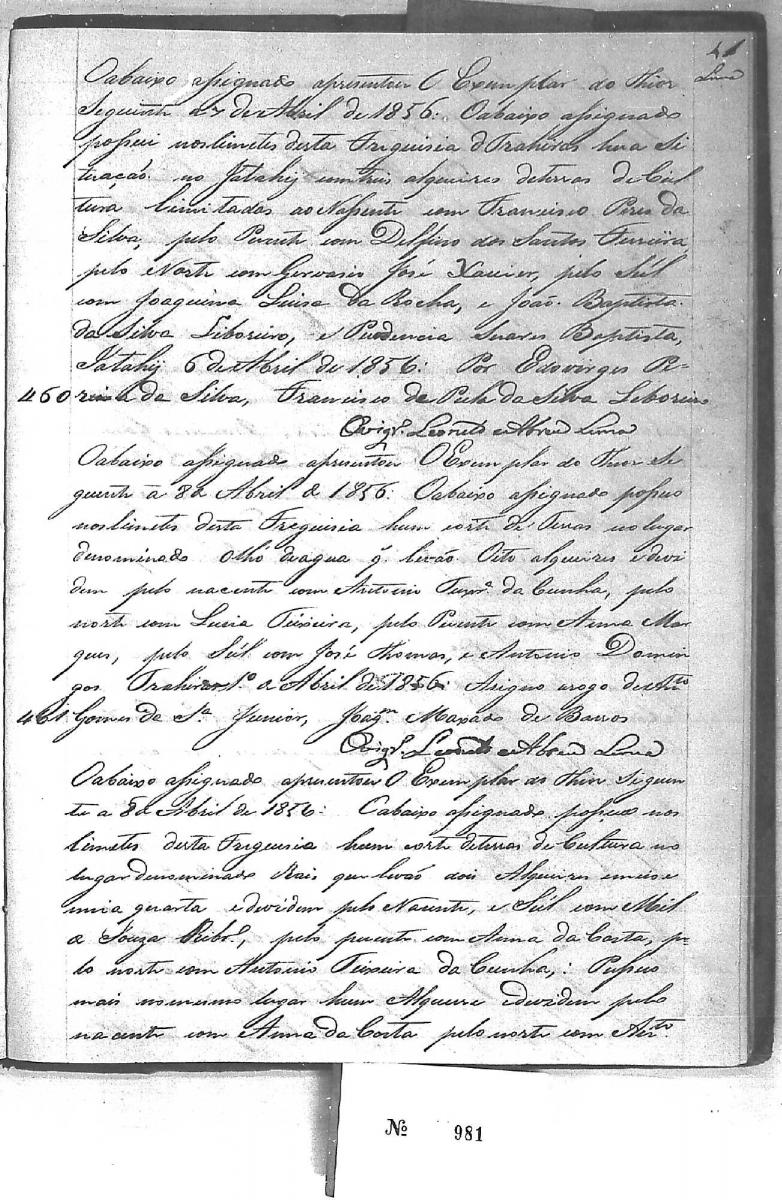 41
Lima
Oabaixo assignado apresentou O Exemplar do Thior
Seguinte a 7 de Abril de 1856: Oabaixo assignado
possui noslimetes desta Freguisia d Trahiras hua Si
tuação no Jatahij com tres alqueires deterras de Cul
tura limitadas ao Nassente com Francisco Peres da
Silva, pelo Puente com Delfino dos Santos Ferreira
pelo Norte com Gervasio José Xavier, pelo Súl
com Joaquina Luisa da Rocha, e João Baptista
da Silva Liboreiro, e Prudencia Suares Baptista,
Jatahij 6 de Abril de 1856: Por Edovirges Pe-
460 reira da Silva, Francisco de Paula da Silva Liboreiro
Ovigr.º Leonel de Abreu Lima
Oabaixo assignado apresentou O Exemplar do Thior Se
guinte a 8 d Abril d 1856: Oabaixo assignado possuo
noslimetes desta Freguisia hum corte de Terras no lugar
denominado olho deagua q. levão Oito alqueires e devi
dem pelo nacente com Antonio Teixr.ª da Cunha, pelo
norte com Lucia Teixeira, pelo Puente com Anna Mar
ques, pelo Súl com José Thomas, e Antonio Domin
gos Trahiras 1.º d Abril de 1856: Asigno arogo de Ant.º
461 Gomes da S.ª Junior, Joaq.m Maxado de Barros
Ovigr.º Leonel de Abreu Lima
Oabaixo assignado apresentou O Exemplar do Thior Seguin
te a 8 d Abril de 1856: Oabaixo assignado possuo nos
limetes desta Freguisia hum corte deterras de Cultura no
lugar denominado Rais que levão dois Alqueires emeio e
mia quarta e devidem pelo Nacente, e Súl com Mel
d Souza Ribr.º, pelo puente com Anna da Costa, pe
lo norte com Antonio Teixeira da Cunha,: Possuo
mais nomesmo lugar hum Alqueire e devidem pelo
nacente com Anna da Costa pelo norte com Ant.º
Nº 981